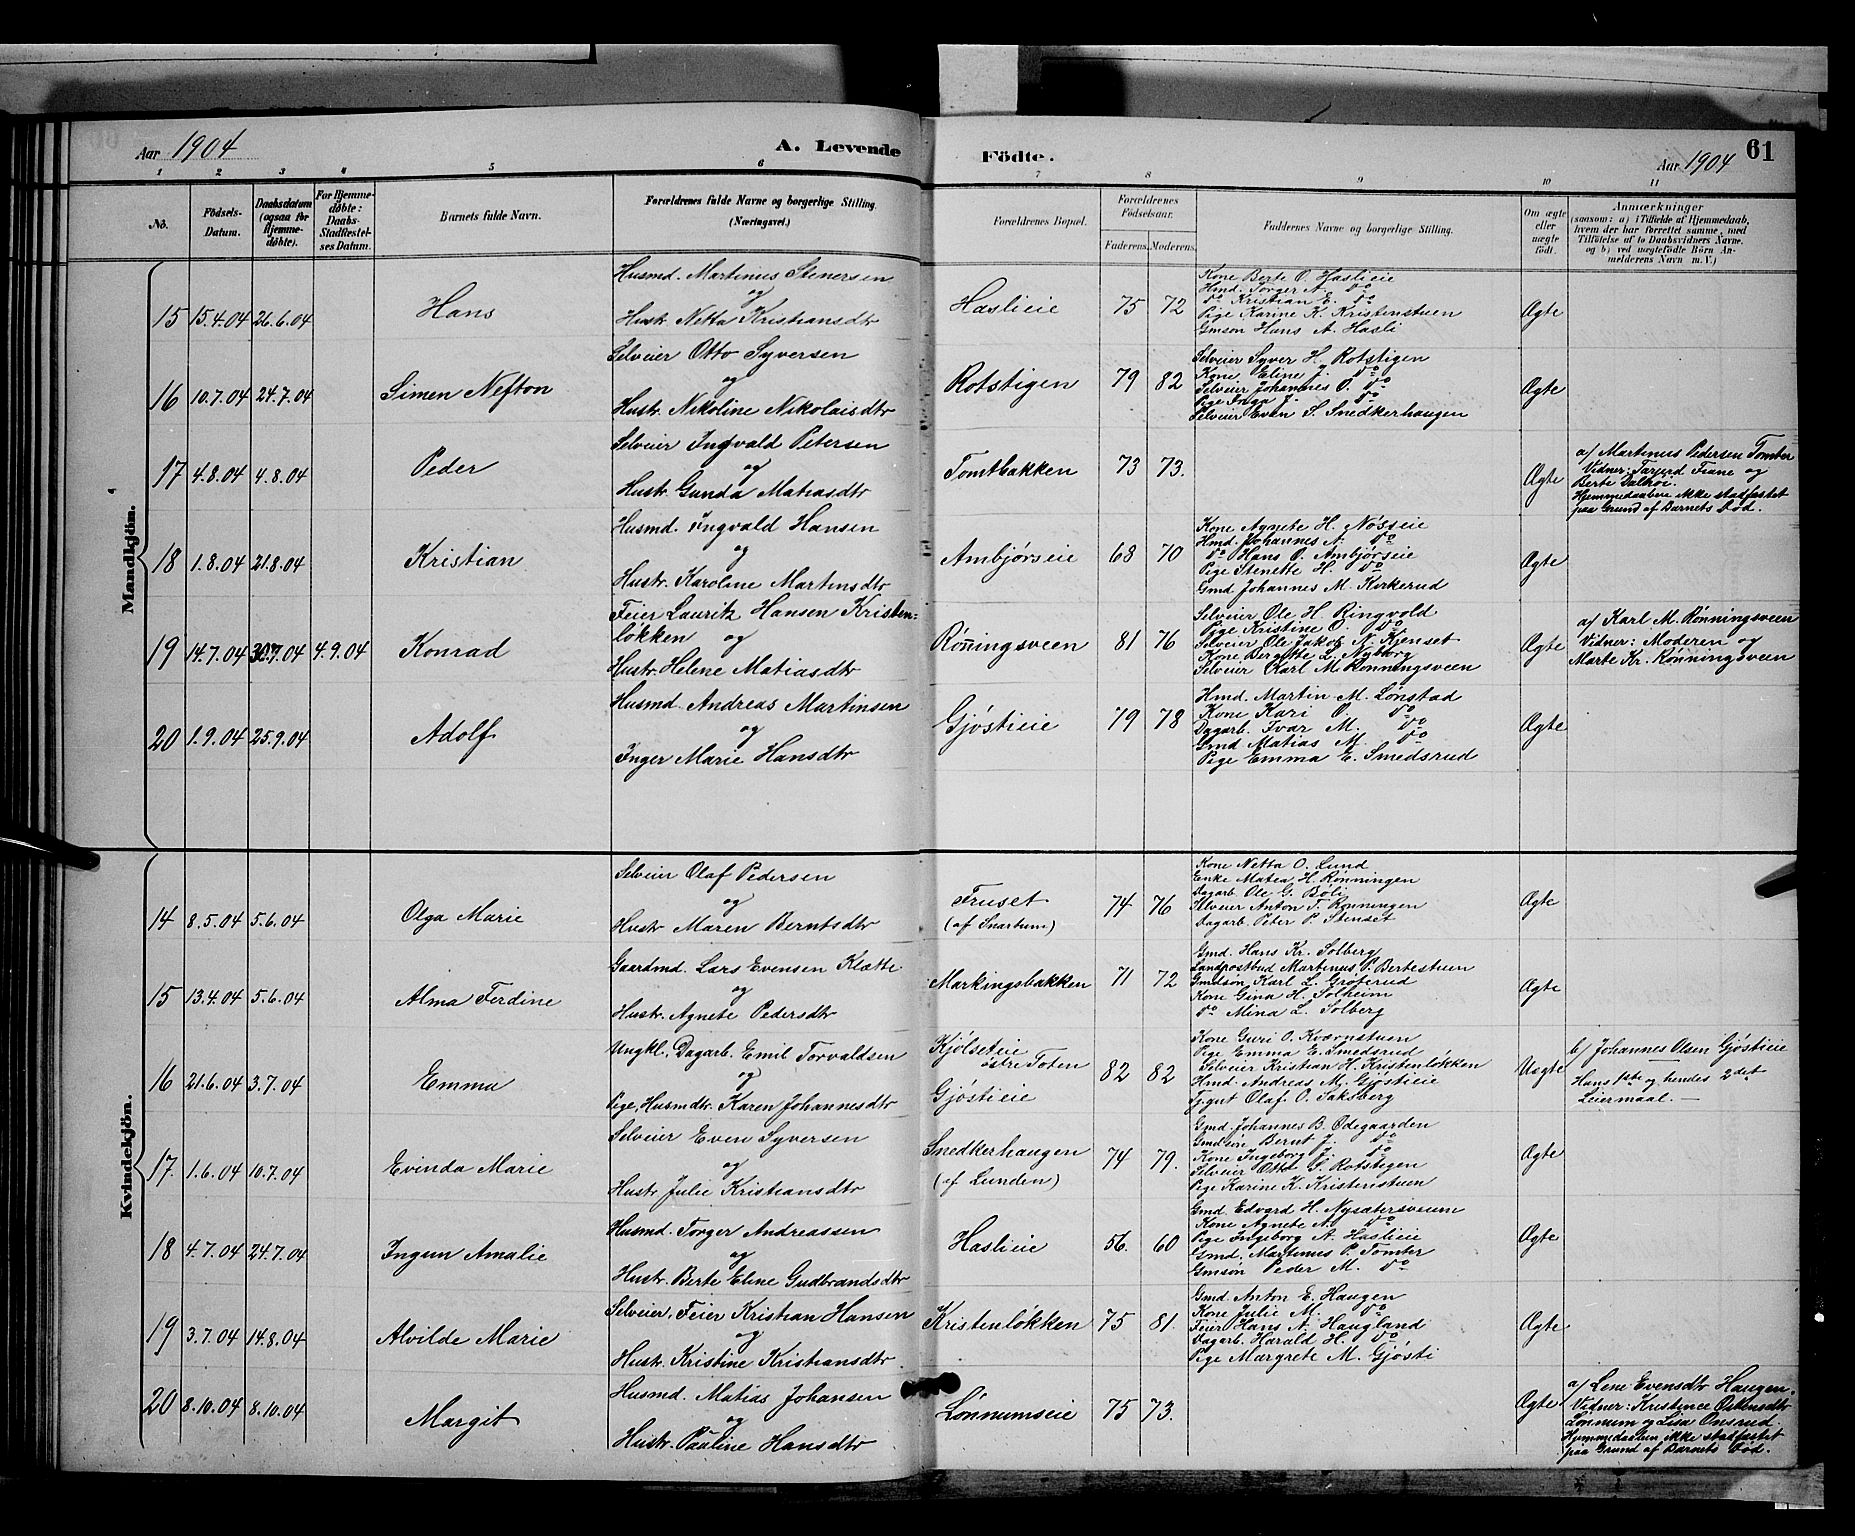 Aar 1904
A. Levende
Födte.
Aar 1904
61
1 2 3 4 5 6 7 8 9 10 11
No.
Födsels-Datum.
Daabsdatum (ogsaa for Hjemme-döbte).
For Hjemme-döbte: Daabs-Stadfæstel-ses Datum.
Barnets fulde Navn.
Forældrenes fulde Navne og borgerlige Stilling. (Næringsvei.)
Forældrenes Bopæl.
Forældrenes Födselsaar.
Faderens. Moderens.
Faddernes Navne og borgerlige Stilling.
Om ægte eller uægte födt.
Anmærkninger
(saasom: a) i Tilfælde af Hjemmedaab, hvem der har forrettet samme, med Tilföielse af to Daabsvidners Navne, og b) ved uægtefödte Börn An-melderens Navn m. V.)
Mandkjön.
15 15.4.04 26.6.04
Hans
Husmd. Martinus Stenersen
og
Hustr. Netta Kristiansdtr
Haslieie
75 72
Kone Berte O. Haslieie
Hmd. Torger A. do
do Kristian E. do
Pige Karine K. Kristenstuen
Gmsøn Hans A. Hasli
Ægte
16 10.7.04 24.7.04
Simen Nefton
Selveier Otto Syversen
og
Hustr. Nikoline Nikolaisdtr
Rotstigen
79 82
Selveier Syver H. Rotstigen
Kone Eline J. do
Selveier Johannes O. do
Pige Inga J. do
Selveier Even S. Snedkerhaugen
Ægte
17 4.8.04 4.8.04
Peder
Selveier Ingvald Petersen
og
Hustr. Gunda Matiasdtr
Tomtbakken
73 73.
Ægte
a/ Martinus Pedersen Tomter
Vidner: Tarjerd Fiane og
Berte Dalhoi.
Hjemmedaaben ikke stadfæstet
paa Grund af Barnets Död.
18 1.8.04 21.8.04
Kristian
Husmd. Ingvald Hansen
og
Hustr. Karoline Martinsdtr
Ambjørseie
68 70
Kone Agnete H. Nøsseie
Hmd. Johannes A. do
do Hans O. Ambjörseie
Pige Stenette H. do
Gmd. Johannes M. Kirkerud
Ægte
19 14.7.04 30.7.04 4.9.04
Konrad
Feier Lauritz Hansen Kristen-
løkken og
Hustr. Helene Matiasdtr
Rønningsveen
81 76
Selveier Ole H. Ringvold
Pige Kristine O. do
Selveier Ole Jakob N. Kjenset
Kone Bergitte L. Nyborg
Selveier Karl M Rønningsveen
Ægte
a/ Karl M. Rønningsveen
Vidner: Moderen og
Marte Kr. Rønningsveen
20 1.9.04 25.9.04
Adolf
Husmd. Andreas Martinsen
og
Inger Marie Hansdtr
Gjøstieie
79 78
Hmd. Martin M. Lønstad
Kone Kari O. do
Dagarb. Ivar M. do
Gmd Matias M. do
Pige Emma E. Smedsrud
Ægte
Kvindekjön.
14 8.5.04 5.6.04
Olga Marie
Selveier Olaf Pedersen
og
Hustr. Maren Berntsdtr
Fruset
(af Snartum)
74 76
Kone Netta O. Lund
Enke Matea H. Rønningen
Dagarb. Ole G. Böli
Selveier Anton T. Rønningen
Dagarb. Peter P. Stenset
Ægte
15 13.4.04 5.6.04
Alma Ferdine
Gaardmd. Lars Evensen Klætte
og
Hustr. Agnete Pedersdtr
Markingsbakken
71 72
Gmd. Hans Kr. Solberg
Landpostbud Martinus P. Bertestuen
Gmdsøn Karl L. Grøterud
Kone Gina H. Solheim
do Mina L. Solberg
Ægte
16 21.6.04 3.7.04
Emma
Ungkl. Dagarb. Emil Torvaldsen
og
Pige, Husmdtr. Karen Johannesdtr
Kjølseteie
østre Toten
Gjøstieie
82 82
Kone Guri O. Kværnstuen
Pige Emma E. Smedsrud
Selveier Kristian H. Kristenløkken
Hmd. Andreas M. Gjøstieie
Tjgut Olaf O. Saksberg
Uægte
b/ Johannes Olsen Gjøstieie
Hans 1ste og hendes 2det
Leiermaal. —
17. 1.6.04 10.7.04
Evinda Marie
Selveier Even Syversen
og
Hustr. Julie Kristiansdtr
Snedkerhaugen
(af Lunden)
74 79.
Gmd. Johannes B. Ødegaarden
Gmdsøn Bernt J. do
Kone Ingeborg J. do
Selveier Otto S. Rotstigen
Pige Karine K. Kristenstuen
Ægte
18 4.7.04 24.7.04
Ingun Amalie
Husmd. Torger Andreassen
og
Hustr. Berte Eline Gudbrandsdtr
Haslieie
56. 60
Gmd. Edvard H. Nysætersveen
Kone Agnete A. do
Pige Ingeborg A. Haslieie
Gmd. Martinus P. Tomter
Gmsøn Peder M. do
Ægte
19 3.7.04 14.8.04
Alvilde Marie
Selveier, Feier Kristian Hansen
og
Hustr. Kristine Kristiansdtr.
Kristenløkken
75 81.
Gmd. Anton E. Haugen
Kone Julie M. do
Feier Hans N. Haugland
Dagarb. Harald H. do
Pige Margrete M. Gjøsti
Ægte
20 8.10.04 8.10.04
Margit
Husmd. Matias Johansen
og
Hustr. Pauline Hansdtr
Lønnumseie
75 73.
Ægte
a/ Lene Evensdtr Haugen.
Vidner: Kristence
Lønnum og Lisa Onsrud.
Hjemmedaaben ikke stadfæstet
paa Grund af Barnets Död.